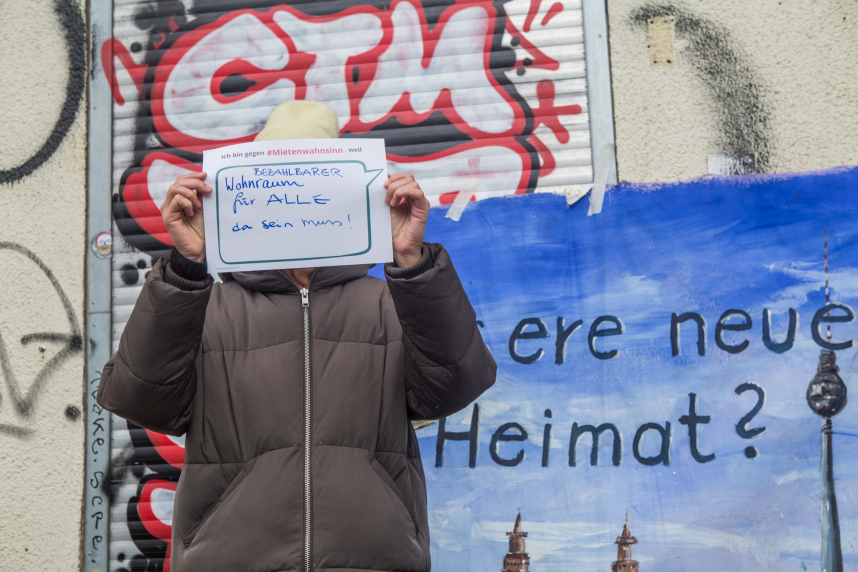 CTM
ich bin gegen #Mietenwahnsinn, weil
BEZAHLBARER
Wohnraum
für ALLE
da sein muss!
ere neue
Heimat?